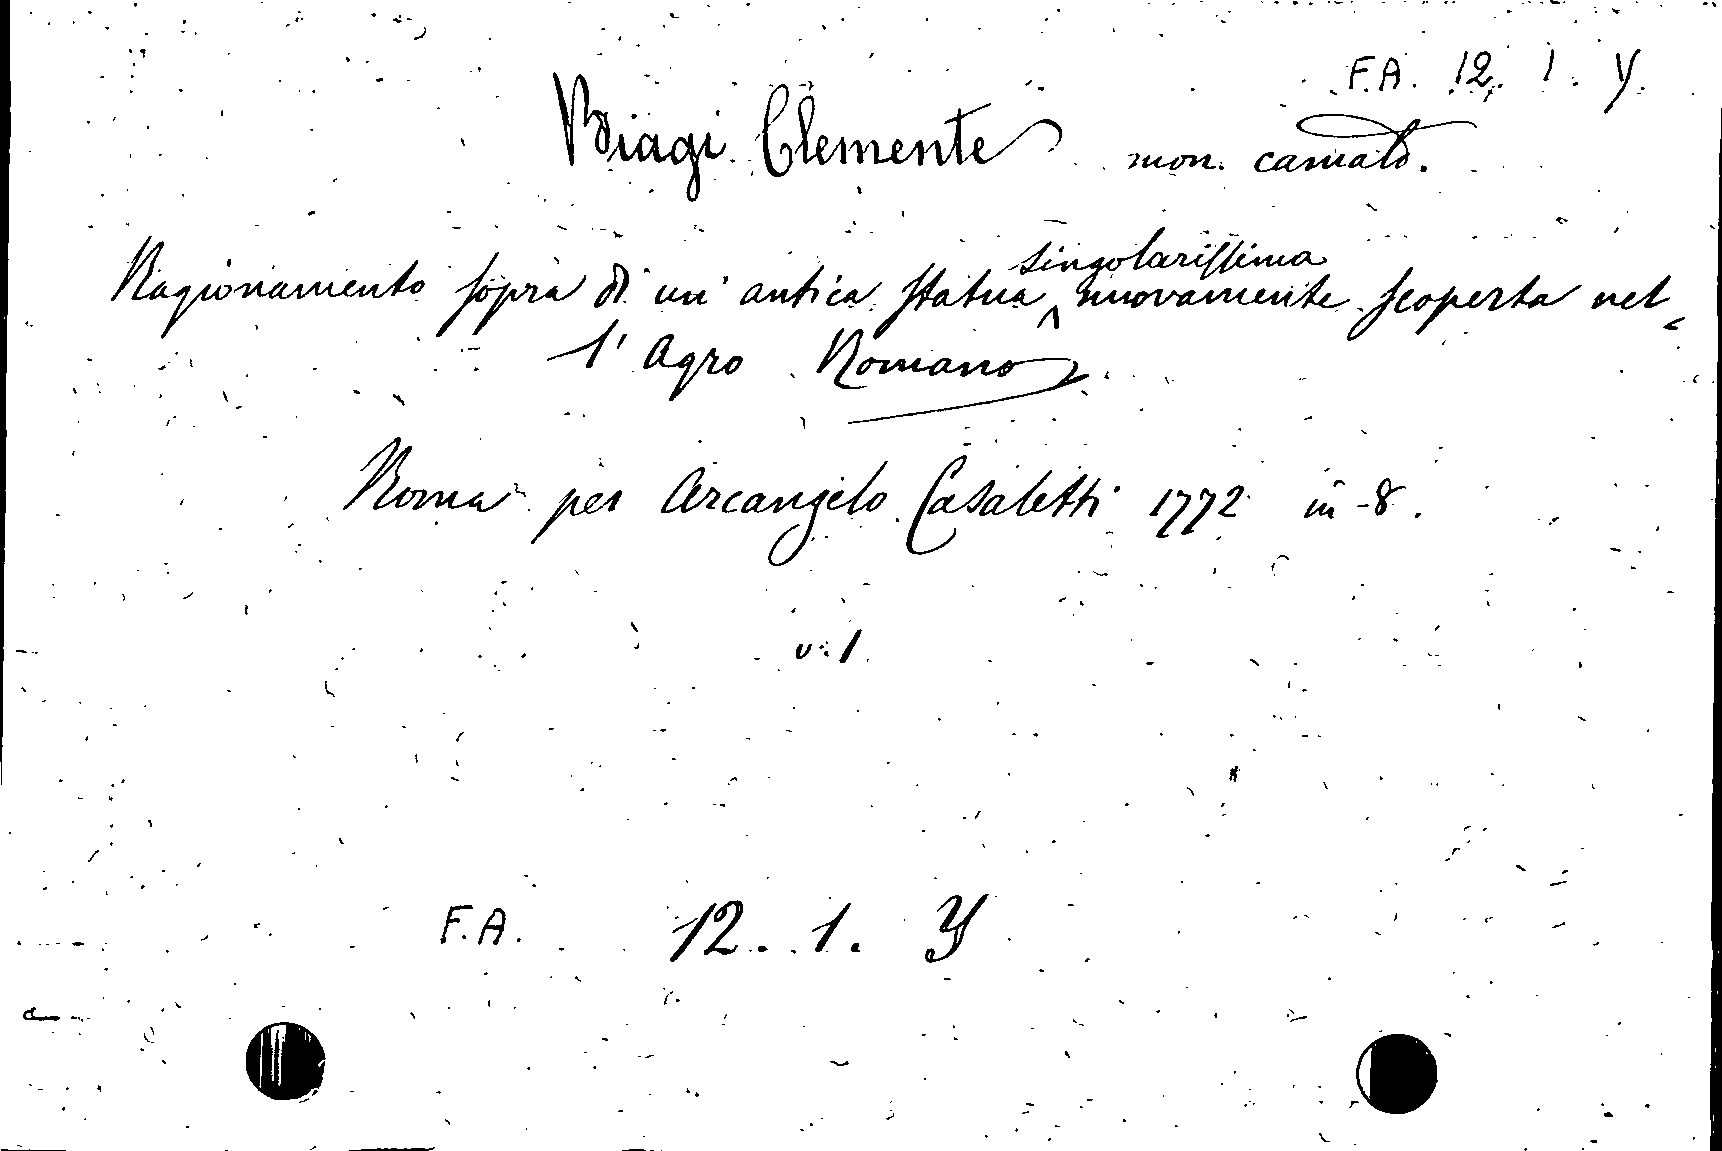 F.A. 12. 1. Y.
Biagi Clemente mon. camald.
Ragionamento sopra di un' antica statua singolarissima nuovamente scoperta nel-
l' Agro Romano
Roma per Arcangelo Casaletti 1772 in-8.
v. 1
F.A. 12. 1. Y